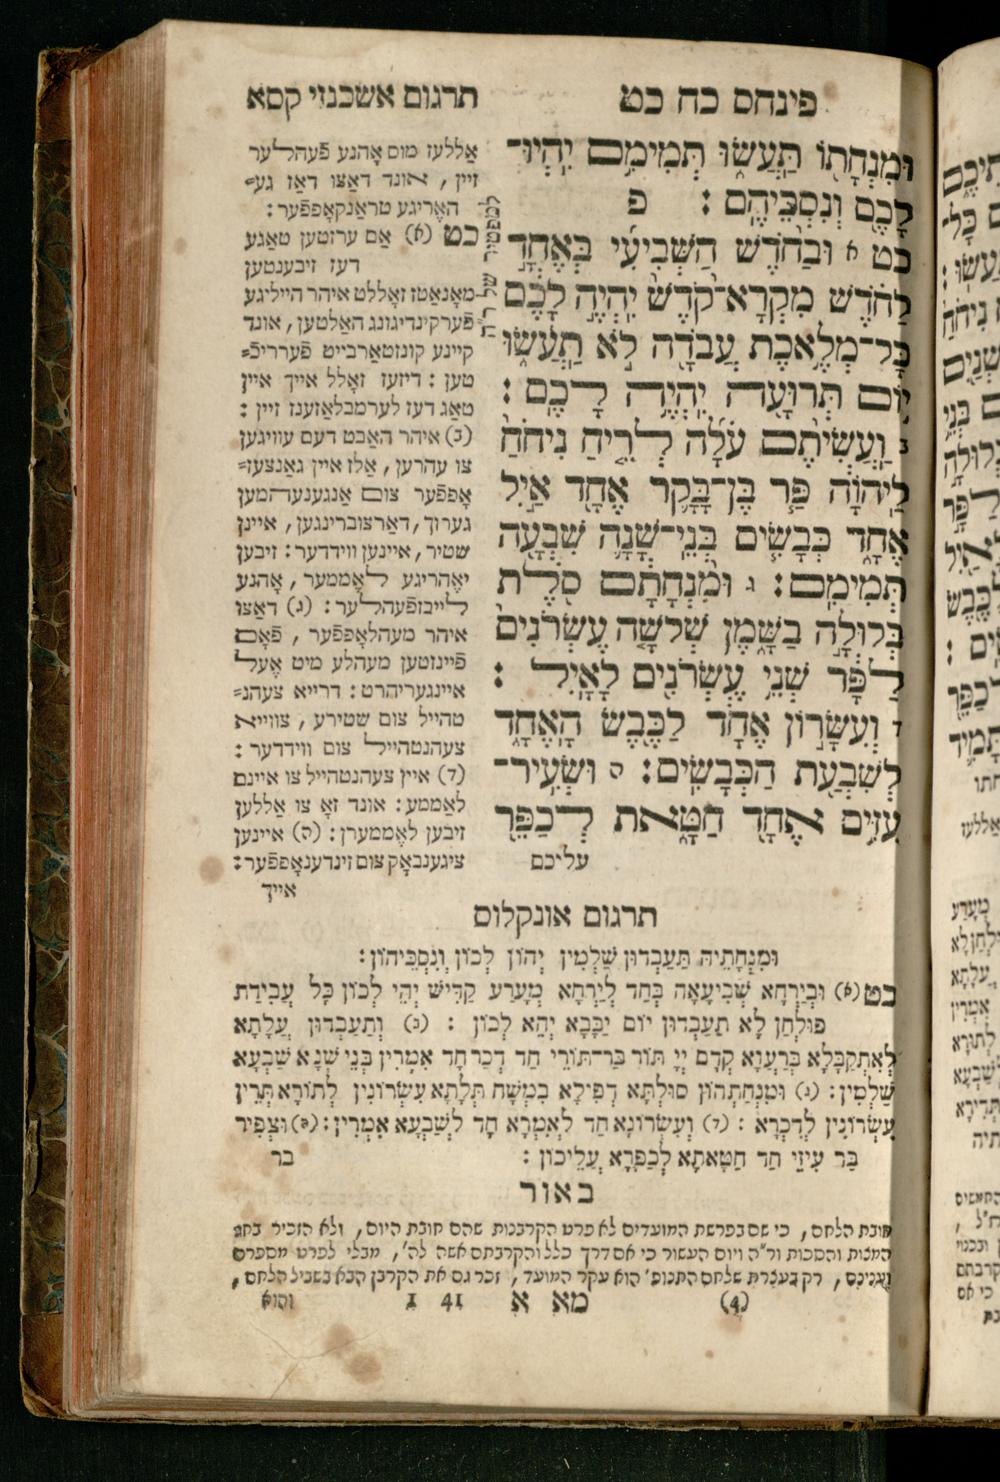 פינחס כח כט
תרגום אשכנזי קסא
וּמִנְחָתוֹ תַּעֲשׂוּ תְּמִימִם יִהְיוּ־
לָכֶם וְנִסְכֵּיהֶם : פ
כט א וּבַחֹדֶשׁ הַשְּׁבִיעִי בְּאֶחָד
לַחֹדֶשׁ מִקְרָא־קֹדֶשׁ יִהְיֶה לָכֶם
כָּל־מְלֶאכֶת עֲבֹדָה לֹא תַעֲשׂוּ
יוֹם תְּרוּעָה יִהְיֶה לָכֶם :
ב וַעֲשִׂיתֶם עֹלָה לְרֵיחַ נִיחֹחַ
לַיהוָֹה פַּר בֶּן־בָּקָר אֶחָד אַיִל
אֶחָד כְּבָשִׂים בְּנֵי־שָׁנָה שִׁבְעָה
תְּמִימִם : ג וּמִנְחָתָם סֹלֶת
בְּלוּלָה בַשָּׁמֶן שְׁלֹשָׁה עֶשְׂרֹנִים
לַפָּר שְׁנֵי עֶשְׂרֹנִים לָאָיִל :
ד וְעִשָּׂרוֹן אֶחָד לַכֶּבֶשׂ הָאֶחָד
לְשִׁבְעַת הַכְּבָשִׂים : ה וּשְׂעִיר־
עִזִּים אֶחָד חַטָּאת לְכַפֵּר
עליכם
למפטיר של ר"ה
אַללעז מוס אָהנע פֿעהלער
זיין , אונד דאַצו דאַז גע=
האָריגע טראַנקאָפפֿער :
כט (א) אַם ערזטען טאַגע
דעז זיבענטען
מאָנאַטז זאָללט איהר הייליגע
פֿערקינדיגונג האַלטען, אונד
קיינע קונזטאַרבייט פֿערריכ=
טען : דיזעז זאָלל אייך איין
טאַג דעז לערמבלאַזענז זיין :
(ב) איהר האַבט דעם עוויגען
צו עהרען, אַלז איין גאַנצעז=
אָפפֿער צום אַנגענעהמען
גערוך, דאַרצוברינגען, איינן
שטיר, איינען ווידדער : זיבען
יאֶהריגע לאֶממער , אָהנע
לייבזפֿעהלער : (ג) דאַצו
איהר מעהלאָפפֿער , פֿאָם
פֿיינזטען מעהלע מיט אֶעל
איינגעריהרט : דרייא צעהנ=
טהייל צום שטירע , צווייא
צעהנטהייל צום ווידדער :
(ד) איין צעהנטהייל צו איינם
לאַממע : אונד זאָ צו אַללען
זיבען לאֶממערן : (ה) איינען
ציגענבאָק צום זינדענאָפפֿער :
אייך
תרגום אונקלוס
וּמִנְחָתֵיהּ תַּעַבְדוּן שַׁלְמִין יְהוֹן לְכוֹן וְנִסְכֵּיהוֹן :
כט (א) וּבְיַרְחָא שְׁבִיעָאָה בְּחַד לְיַרְחָא מְעָרַע קַדִּישׁ יְהֵי לְכוֹן כָּל עֲבִידַת
פּוּלְחַן לָא תַעַבְדוּן יוֹם יַבָּבָא יְהֵא לְכוֹן : (ב) וְתַעַבְדוּן עֲלָתָא
לְאִתְקַבָּלָא בְּרַעֲוָא קֳדָם יְיָ תּוֹר בַּר־תּוֹרֵי חַד דְּכַר חַד אִמְּרִין בְּנֵי שְׁנָא שַׁבְעָא
שַׁלְמִין : (ג) וּמִנְחַתְהוֹן סוּלְתָּא דְפִילָא בִמְשַׁח תְּלָתָא עִשְׂרוֹנִין לְתוֹרָא תְּרֵין
עִשְׂרוֹנִין לְדִכְרָא : (ד) וְעִשְׂרוֹנָא חַד לְאִמְּרָא חָד לְשַׁבְעָא אִמְּרִין : (ה) וּצְפִיר
בַּר עִזֵּי חַד חַטָּאתָא לְכַפָּרָא עֲלֵיכוֹן :
בר
באור
חובת הלחם, כי שם בפרשת המועדים לא פרט הקרבנות שהם חובת היום, ולא הזכיר בחג
המצות והסכות ור"ה ויום העשור כי אם דרך כלל והקרבתם אשה לה', מבלי לפרט מספרם
וענינם, רק בעצרת שלחם התנופ' הוא עקר המועד, זכר גם את הקרבן הבא בשביל הלחם,
(4) מא א 41 I והוא